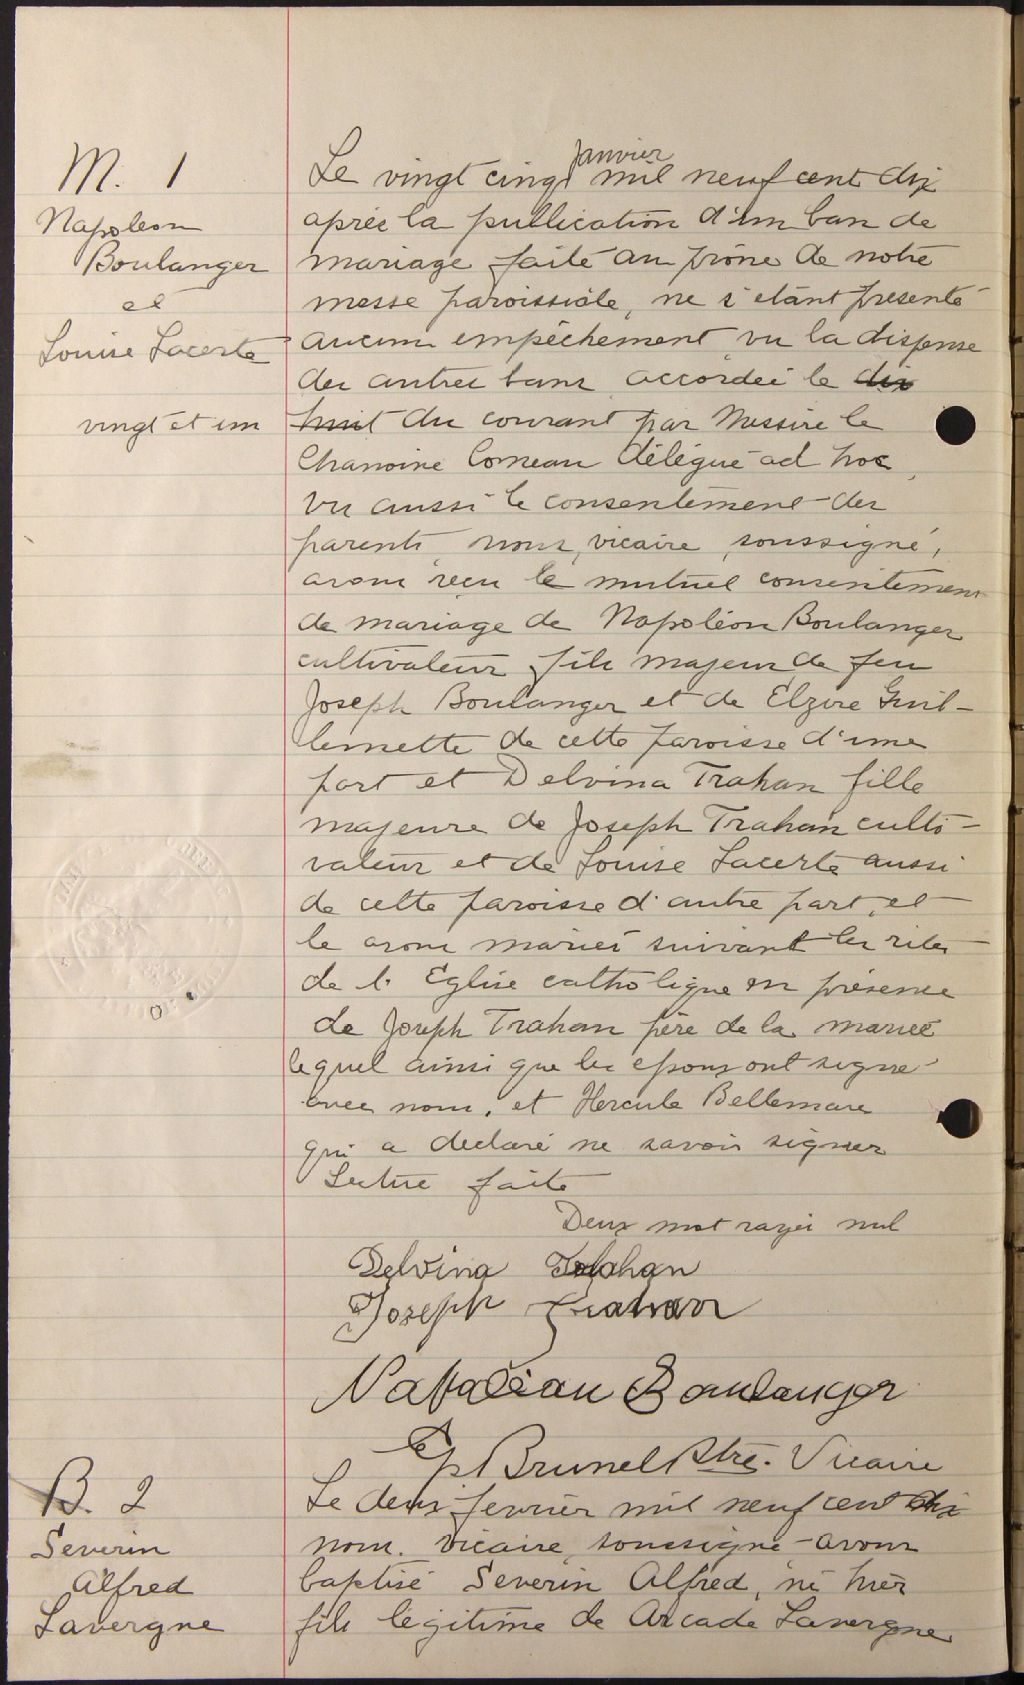 M. 1
Napoleon
Boulanger
et
Louise Lacerte
vingt et un
Janvier
Le vingt cinq mil neuf cent dix
après la publication d'un ban de
mariage faite au prône de notre
messe paroissiale, ne s'étant présenté
aucun empêchement vu la dispense
des autres bans accordée le dix
huit du courant par Messire le
Chanoine Comeau délégué ad hoc,
vu aussi le consentement des
parents, nous, vicaire soussigné,
avons reçu le mutuel consentement
de mariage de Napoléon Boulanger
cultivateur fils majeur de feu
Joseph Boulanger et de Elzire Guil-
lemette de cette paroisse d'une
part et Delvina Trahan fille
majeure de Joseph Trahan culti-
vateur et de Louise Lacerte aussi
de cette paroisse d'autre part, et
le avons mariés suivant les rites
de l'Eglise catholique en présence
de Joseph Trahan père de la mariée
lequel ainsi que les époux ont signé
avec nous, et Hercule Bellemare
qui a declaré ne savoir signer
Lecture faite
Deux mot rayés nul
Delvina Trahan
Joseph Trahan
Napoléan Boulanger
Ep Brunel Ptre. Vicaire
B. 2
Severin
Alfred
Lavergne
Le deux fevrier mil neuf cent dix
nous, vicaire, soussigné avons
baptisé Severin Alfred, né hier
fils légitime de Arcade Lavergne